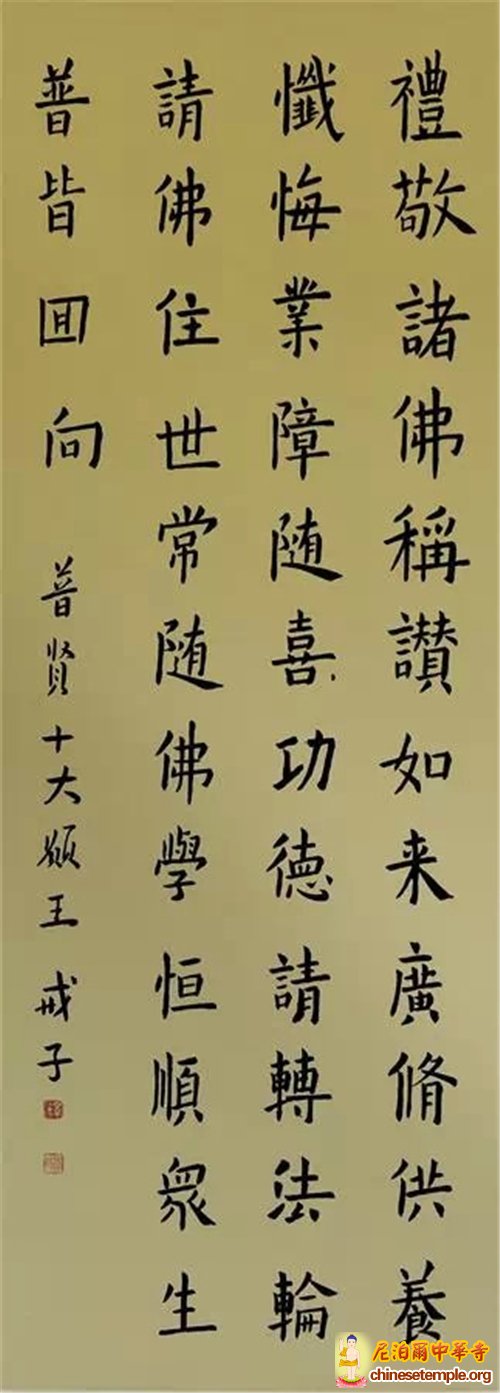 禮敬諸佛稱讃如来廣脩供養
懺悔業障随喜功德請轉法輪
請佛住世常随佛學恒順眾生
普皆囬向
普贤十大願王 戒子
尼泊爾中華寺
chinesetemple.org